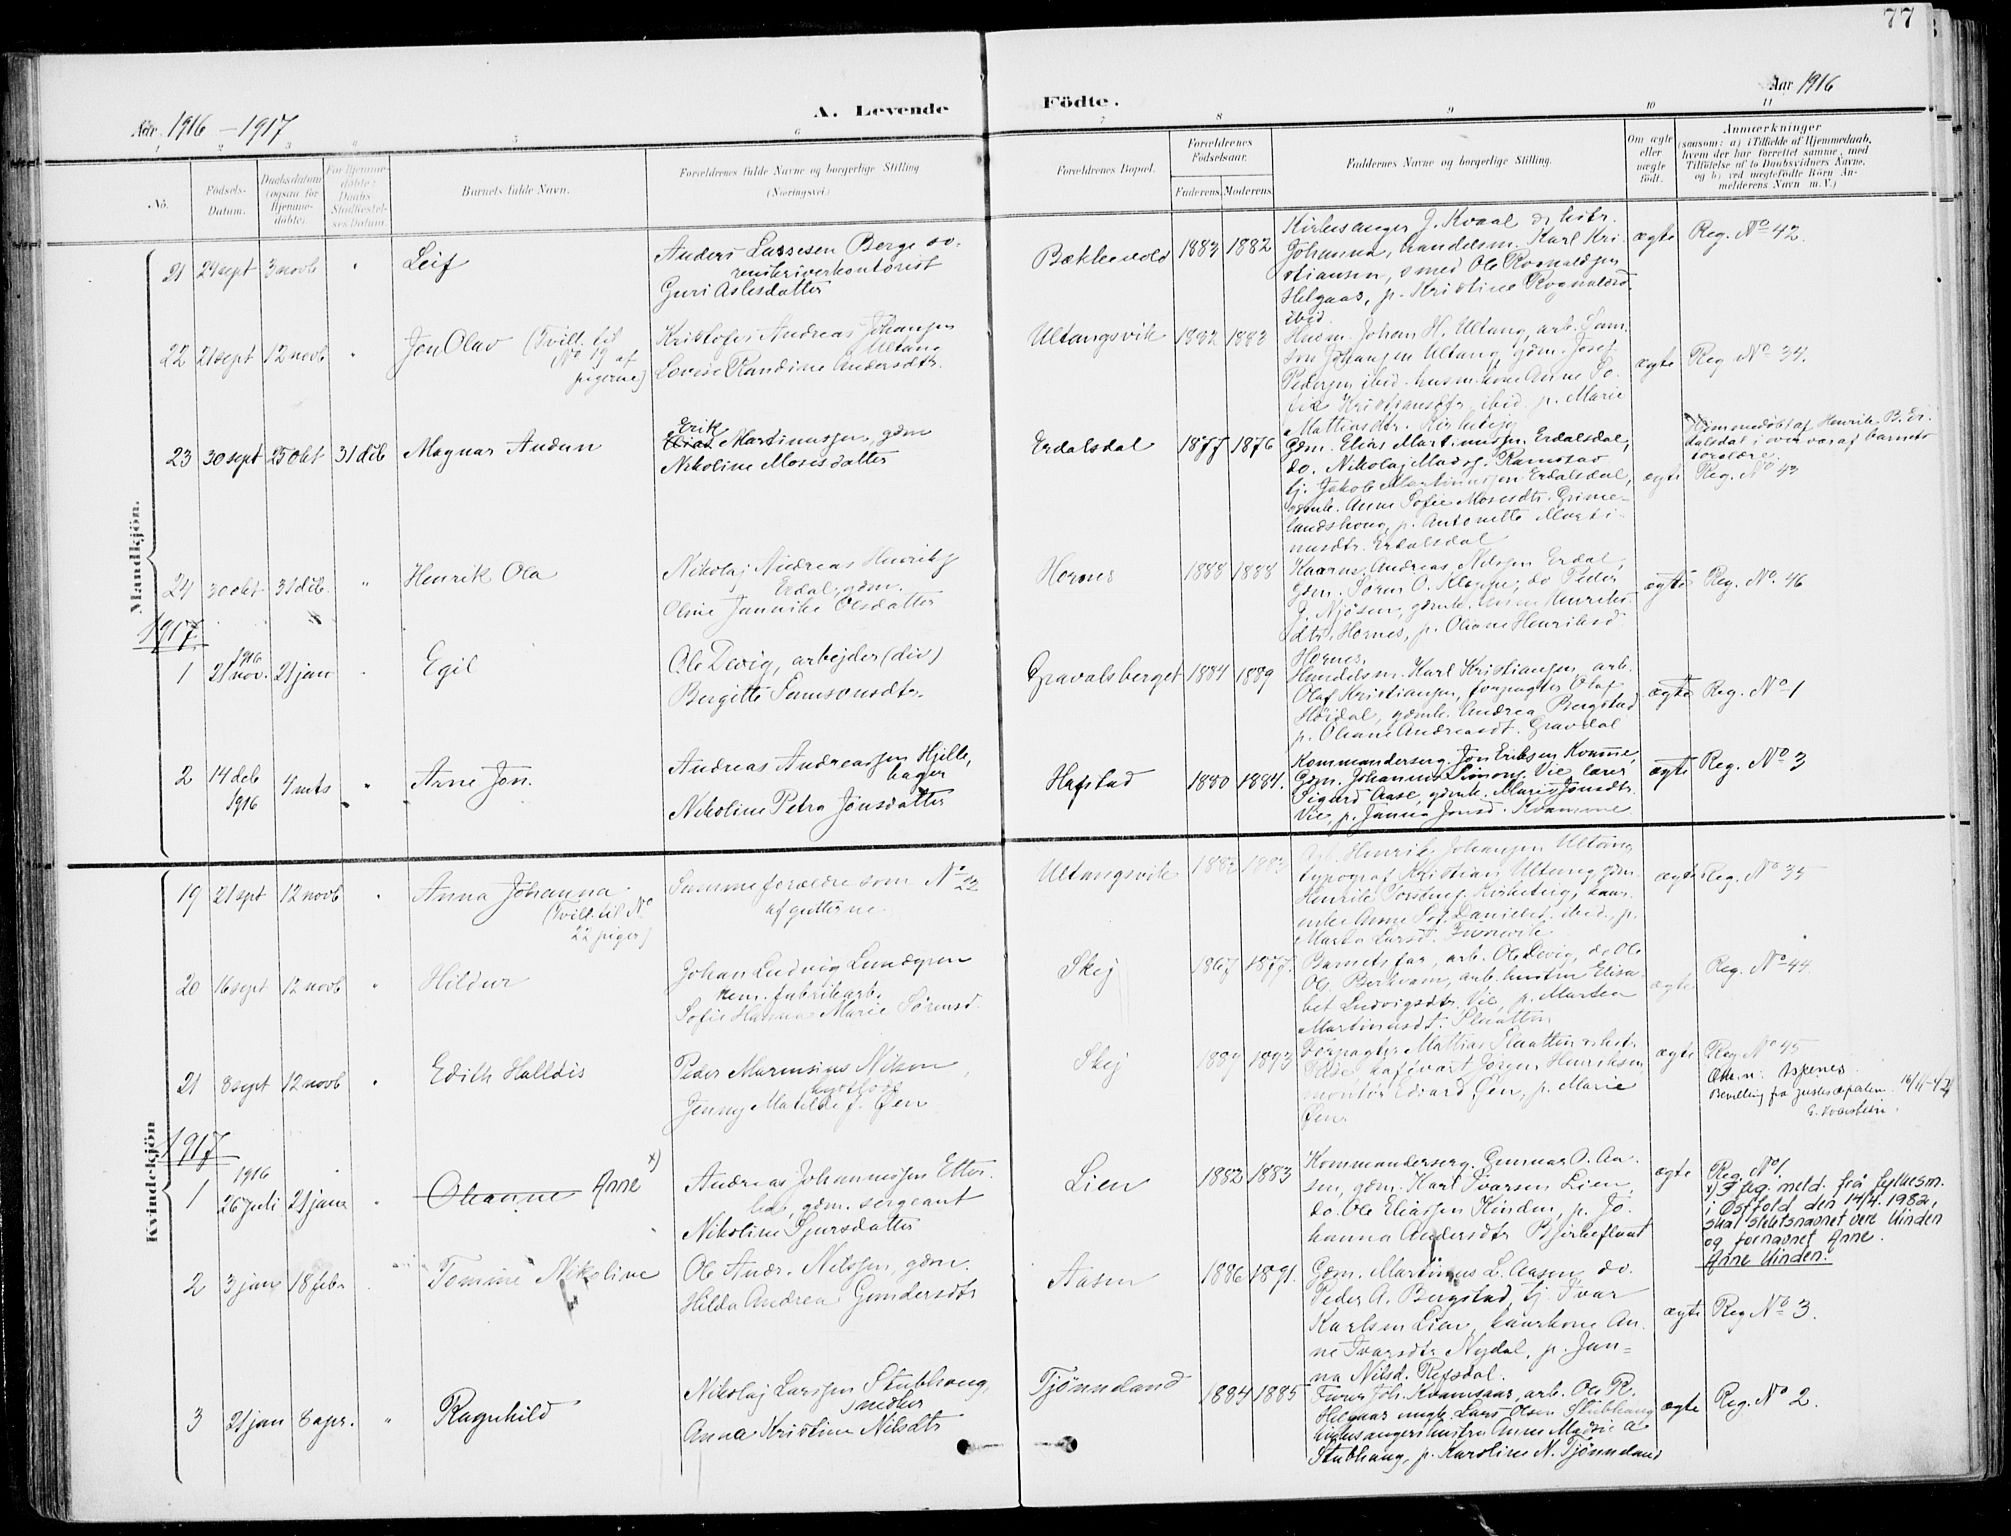 77
Aar 1916 – 1917
A. Levende
Födte.
Aar 1916
1 2 3 4 5 6 7 8 9 10 11
No.
Födsels-
Datum.
Daabsdatum
(ogsaa for
Hjemme-
döbte).
For Hjemme-
döbte:
Daabs
Stadfæstel-
ses Datum.
Barnets fulde Navn.
Forældrenes fulde Navne og borgerlige Stilling
(Næringsvei.)
Forældrenes Bopæl.
Forældrenes
Födselsaar.
Faderens. Moderens.
Faddernes Navne og borgerlige Stilling.
Om ægte
eller
uægte
födt.
Anmærkninger
(saasom: a) i Tilfælde af Hjemmedaab,
hvem der har forrettet samme, med
Tilföielse af to Daabsvidners Navne,
og b) ved uægtefödte Börn An-
melderens Navn m. V.)
Mandkjön.
21 24 sept 3 novb " Leif
Anders Lassesen Berge so-
renskriverkontorist
Guri Aslesdatter
Bækkevold 1883 1882
Kirkesanger J. Kvaal og hstr.
Johanna, handelsm. Karl Kri-
stiansen, smed Ole Rognaldsen
Helgaas, p. Kristine Rognaldsd.
ibid.
ægte Reg. No 42.
22 21 sept 12 novb " Jon Olav (Tvill. til
No 19 af
pigerne)
Kristofer Andreas Johansen
Ultang
Lovise Randine Andersdtr.
Ultangsvik 1882 1883
Husm. Johan H. Ultang, arb. Sam-
son Johansen Ultang, gdm. Josef
Pedersen ibid. husm.kone Anne So-
fie Kristiansdtr ibid p. Marie
Mattiasdtr. Kirketeig
ægte Reg No 34.
23 30 sept 25 okt 31 deb Magnar Andun
Erik
Elias Martinussen, gdm
Nikoline Mosesdatter
Erdalsdal 1877 1876
Gdm. Elias Martinussen Erdalsdal,
do. Nikolaj Mads. Ramstad
tj. Jakob Martinussen Erdalsdal,
gdmk. Anne Sofie Mosesdtr. Grime-
landshaug, p. Antonette Marti-
nusdtr. Erdalsdal
ægte
Hjemmedøbt af Henrik B. Er-
dalsdal i overvær af barnets
forældre.
Reg. No 43
24 30 okt 31 deb. " Henrik Ola
Nikolaj Andreas Henriks
Erdal, gdm.
Oline Jannike Olsdatter
Hornes 1888 1888
Kaarm. Andreas Nilsen Erdal,
gdm. Søren O. Kleppe, do Peder
J. Njøsen, gdmk. Anne Henriks-
dtr. Hornes, p. Oliane Henriksd
Hornes.
ægte Reg. No. 46
1917
1 21 nov. 1916 21 jan " Egil
Ole Devig, arbejder (div)
Bergitte Samsonsdtr.
Gravalsberget 1884 1889
Handelsm. Karl Kristiansen, arb.
Olaf Kristiansen, forpagter Olaf
Høidal, gdmk. Andrea Bergstad
p. Oliane Andreasdt. Gravdal
ægte Reg. No 1
2 14 deb 1916 4 mts " Arne Jon.
Andreas Andreassen Hjelle,
bager
Nikoline Petra Jønsdatter
Hafstad 1880 1884.
Kommandersörg. Jon Eriksen Kvamme,
Gdm. Johannes Simons. Vie, lærer
Sigurd Aase, gdmk. Marie Jønsdtr.
Vie, p. Janna Jonsd. Kvamme
ægte Reg. No 3
Kvindekjön
19 21 spt 12 novb " Anna Johanna.
(Tvill. til No
22 piger)
Samme forældre som No 22
af gutterne.
Ultangsvik 1882 1883
Arb. Henrik Johansen Ultang
typograf Kristian Ultang, gdm.
Henrik Torstens. Kirketeig, kaar-
enke Anne Sof. Danielsd. ibid., p.
Marta Larsd.
ægte Reg. No 35
20 16 sept 12 novb " Hildur
Johan Ludvig Lundgren
kem. fabrikarb.
Sofie Hanna Marie Sørensd.
Skej 1867 1877.
Barnets far, arb. Ole Devig, do Ole
Ols. Birkvam, arb. hustru Elisa-
bet Ludvigsdtr. Vie, p. Martea
Martinusdt. Slaatten
ægte Reg. No 44.
21 8 sept 12 novb " Edith Halldis
Peder Marensius Nilsen,
Jenny Matilde f. Øen
Skej 1887 1893
Forpagter Mattias Slaatten og hstr.
Tilde, kafévært Jørgen Henriksen
montør Edvard Øen, p. Marie
Øen.
ægte Reg No 45
Bevilling fra Justisdepartem.
1917
1 26 juli 1916 21 jan " Oleanne Anne x)
Andreas Johannessen Etter-
lid, gdm. sergeant
Nikoline Sjursdatter
Lien 1882 1883
Kommandersörg. Gunnar O. Aa-
sen, gdm. Karl Ivarsen Lien,
do. Ole Eliassen Hinden, p. Jo-
hanna Andersdtr Bjørkeflaat
ægte Reg. No 1
x) Ifølg. meld. frå fylkesm.
i Østfold den 14/4. 1982,
skal slektsnavnet vere Hinden
og fornavnet Anne.
Anne Hinden.
2 3 jan 18 febr " Tomine Nikoline
Ole Andr. Nilssen, gdm.
Hilda Andrea Gundersdtr
Aasen 1886 1891.
Gdm. Martinus L. Aasen, do.
Peder A. Bergstad, tj. Ivar
Karlsen Lien, kaarkone An-
ne Ivarsdtr Nydal, p. Jan-
na Nilsd. Refsdal.
ægte Reg No 3.
3 21 jan 8 apr. " Ragnhild
Nikolaj Larssen Stubhaug,
snedker
Anna Kristine Nilsdtr
Tjønneland 1884 1885
Furer Joh. Kvamsaas, arb. Ole R.
Helgaas ungk. Lars Olsen Stubhaug
kirkesangershustru Anne Mydsie a
Stubhaug, p. Karoline N. Tjønneland
ægte Reg. No 2.